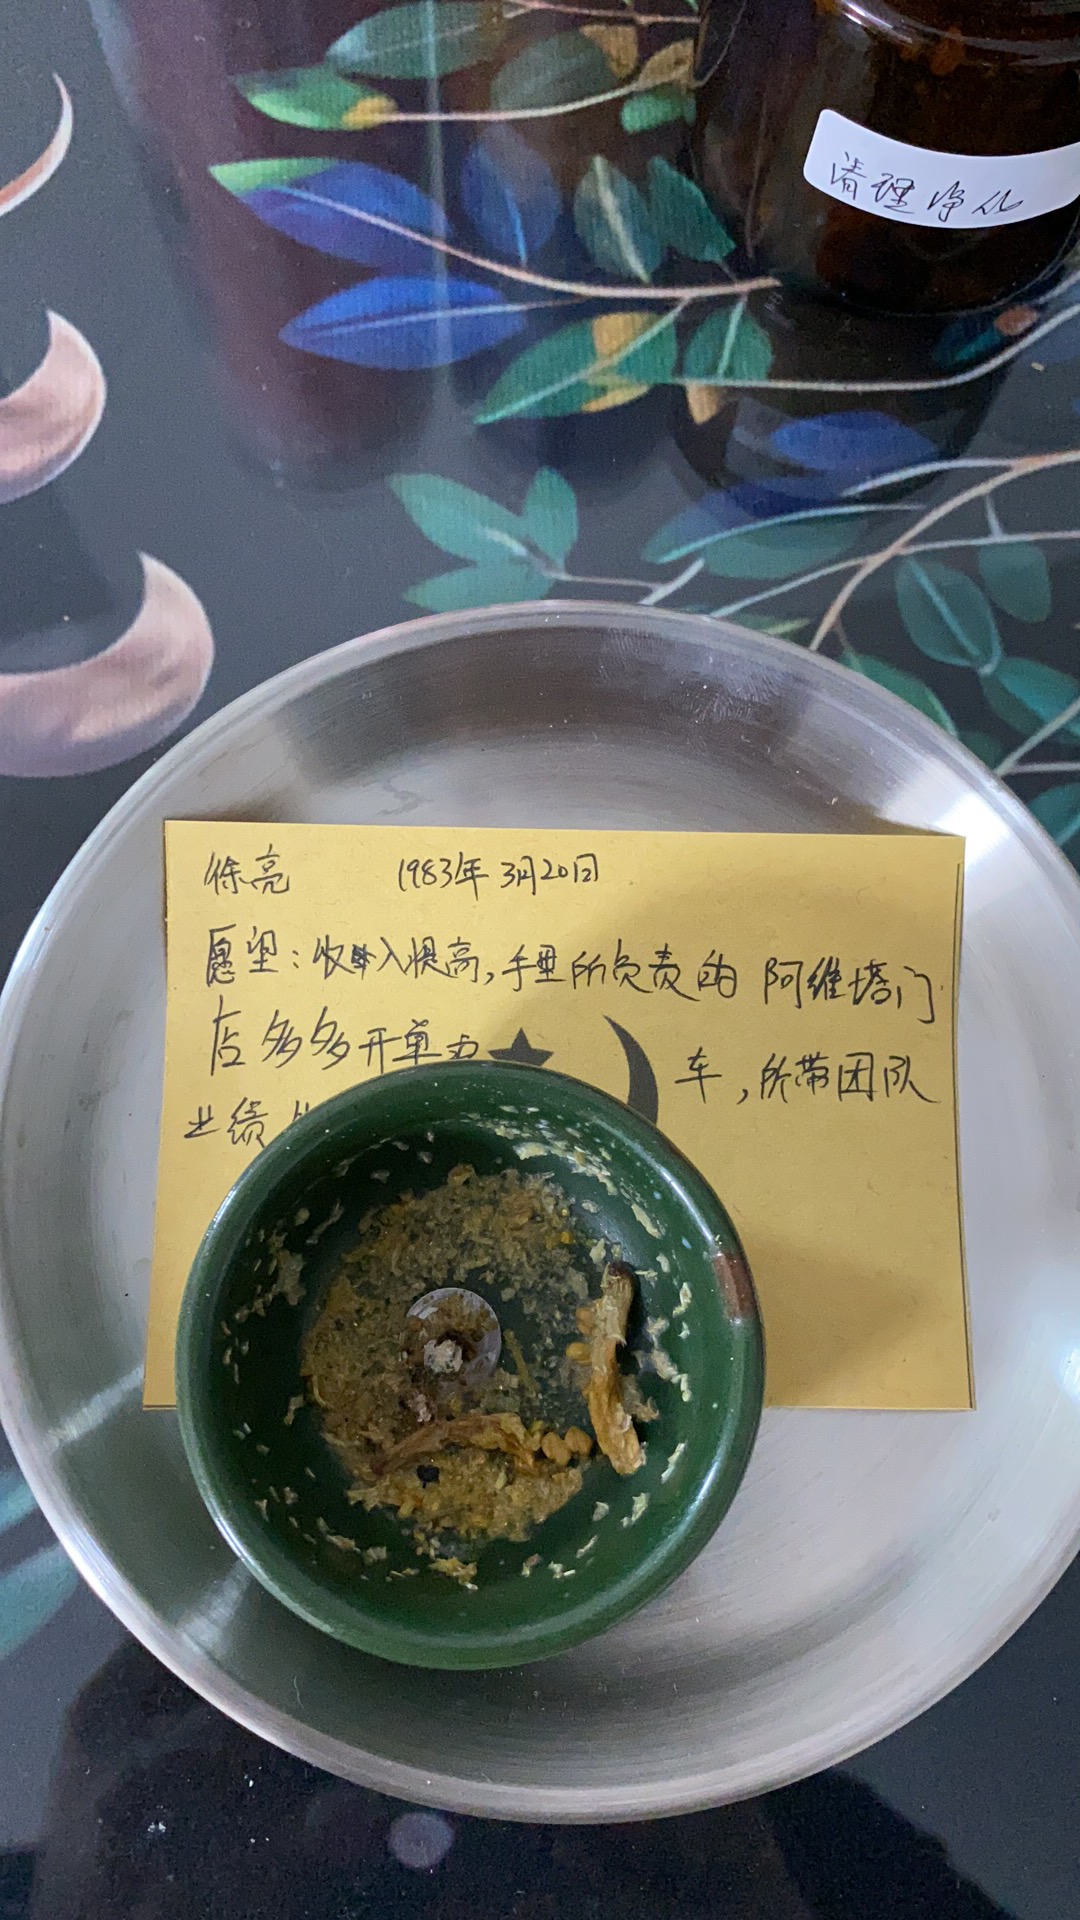 清理净化
徐亮 1983年3月20日
愿望:收入提高,手里所负责的 阿维塔门
店多多开单 车,所带团队
业绩